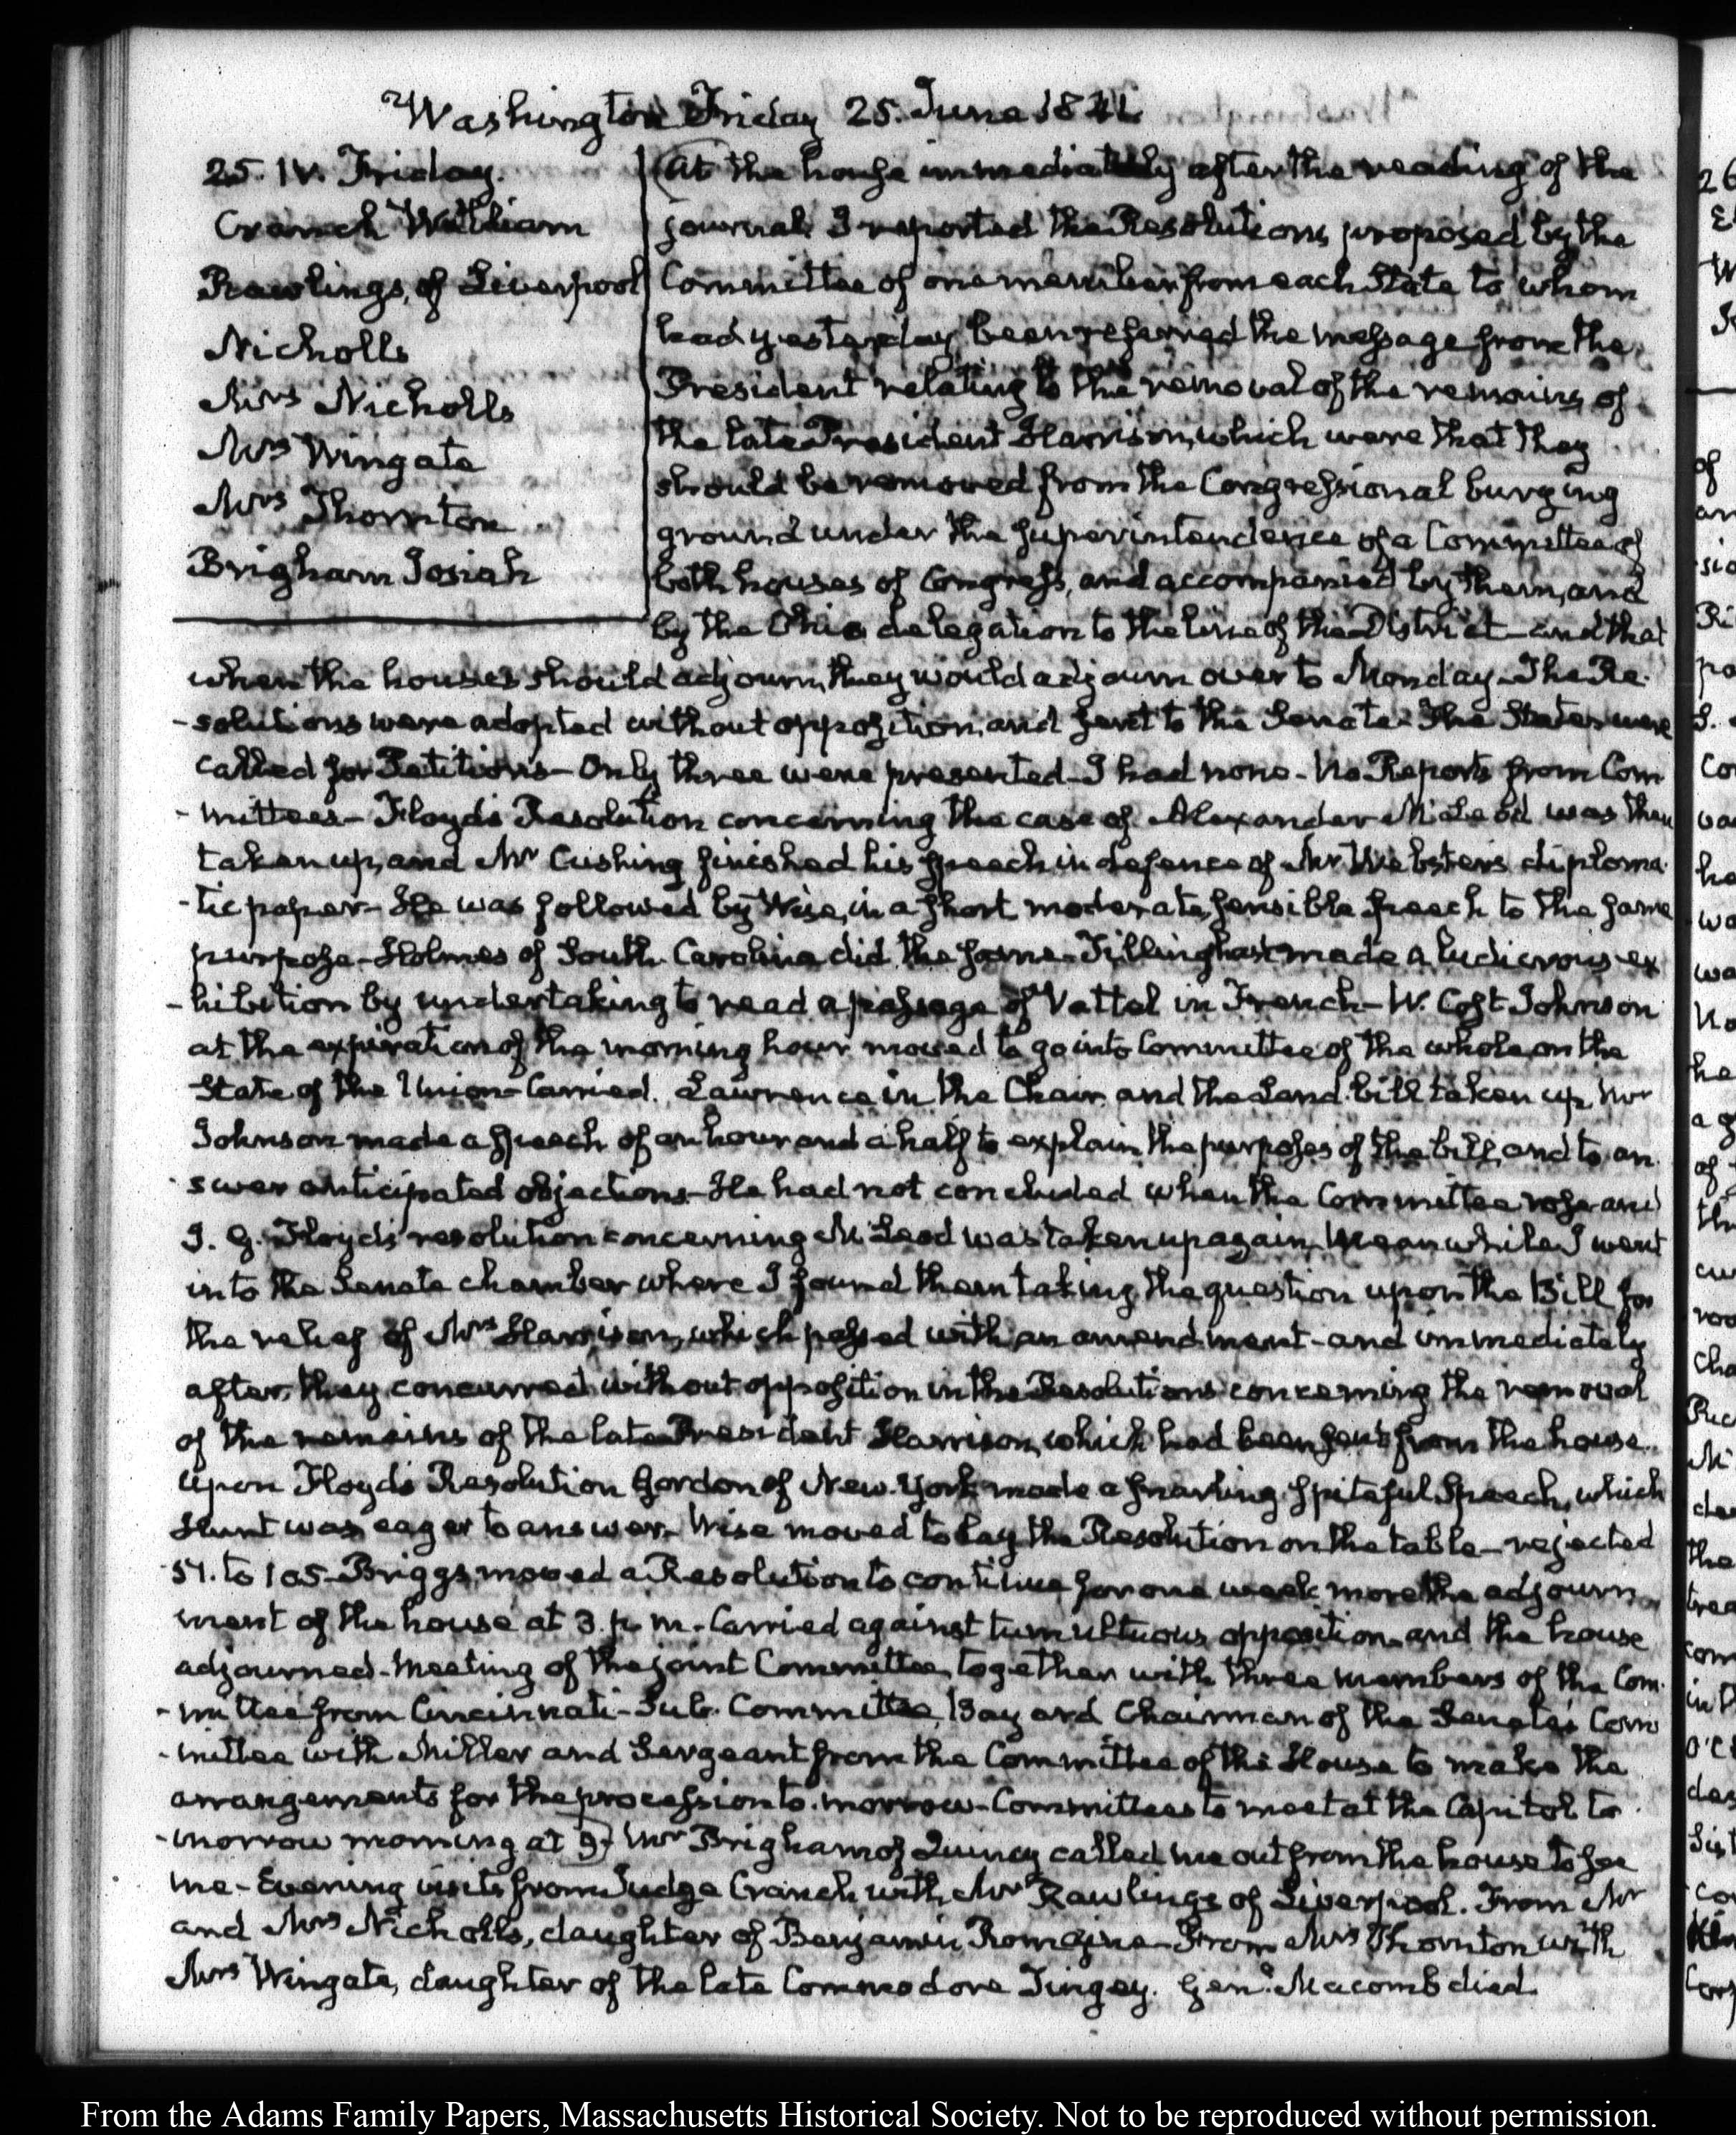 Washington Friday 25. June 1841
25. IV. Friday.
Cranch William
Rawlings, of Liverpool
Nicholls
Mrs Nicholls
Mrs Wingate
Mrs Thornton
Brigham Josiah
At the house immediately after the reading of the
journal, I reported the Resolutions proposed by the
Committee of one member from each State to whom
had yesterday been referred the message from the
President relating to the removal of the remains of
the late President Harrison, which were that they
should be removed from the Congressional burying
ground under the superintendence of a Committee of
both houses of Congress, and accompanied by them, and
by the Ohio delegation to the line of the District—and that
when the houses should adjourn, they would adjourn over to Monday—The Re-
-solutions were adopted without opposition, and sent to the Senate—The States were
called for Petitions—Only three were presented—I had none—No Reports from Com
-mittees—Floyd's Resolution concerning the case of Alexander McLeod was then
taken up, and Mr Cushing finished his speech in defence of Mr Webster's diploma-
-tic paper—He was followed by Wise, in a short moderate, sensible speech to the same
purpose—Holmes of South Carolina did the same—Tillinghast made a ludicrous ex
-hibition by undertaking to read a passage of Vattel in French—W. Cost Johnson
at the expiration of the morning hour moved to go into Committee of the whole on the
State of the Union—Carried. Lawrence in the Chair and the Land bill taken up, Mr
Johnson made a speech of an hour and a half to explain the purposes of the bill, and to an-
-swer anticipated objections—He had not concluded when the Committee rose and
J. G. Floyd's resolution concerning McLeod was taken up again, Meanwhile I went
into the Senate chamber where I found them taking the question upon the Bill for
the relief of Mrs Harrison, which passed with an amendment—and immediately
after, they concurred without opposition in the Resolutions concerning the removal
of the remains of the late President Harrison, which had been sent from the house.
Upon Floyd's Resolution Gordon of New-York made a snarling, spiteful Speech, which
Hunt was eager to answer—Wise moved to lay the Resolution on the table—rejected
54. to 105—Briggs moved a Resolution to continue for one week more the adjourn-
ment of the house at 3. p. m.—Carried against tumultuous opposition and the house
adjourned—Meeting of the joint Committee, together with three members of the Com-
-mittee from Cincinnati—Sub. Committee, Bayard Chairman of the Senate's Com
-mittee with Miller and Sergeant from the Committee of the House to make the
arrangements for the procession to-morrow—Committees to meet at the Capitol to-
-morrow morning at 9. Mr Brigham of Quincy called me out from the house to see
me—Evening visits from Judge Cranch with Mr Rawlings of Liverpool. From Mr
and Mrs Nicholls, daughter of Benjamin Romaine—From Mrs Thornton with
Mrs Wingate, daughter of the late Commodore Tingey. Genl. Macomb died.
From the Adams Family Papers, Massachusetts Historical Society. Not to be reproduced without permission.